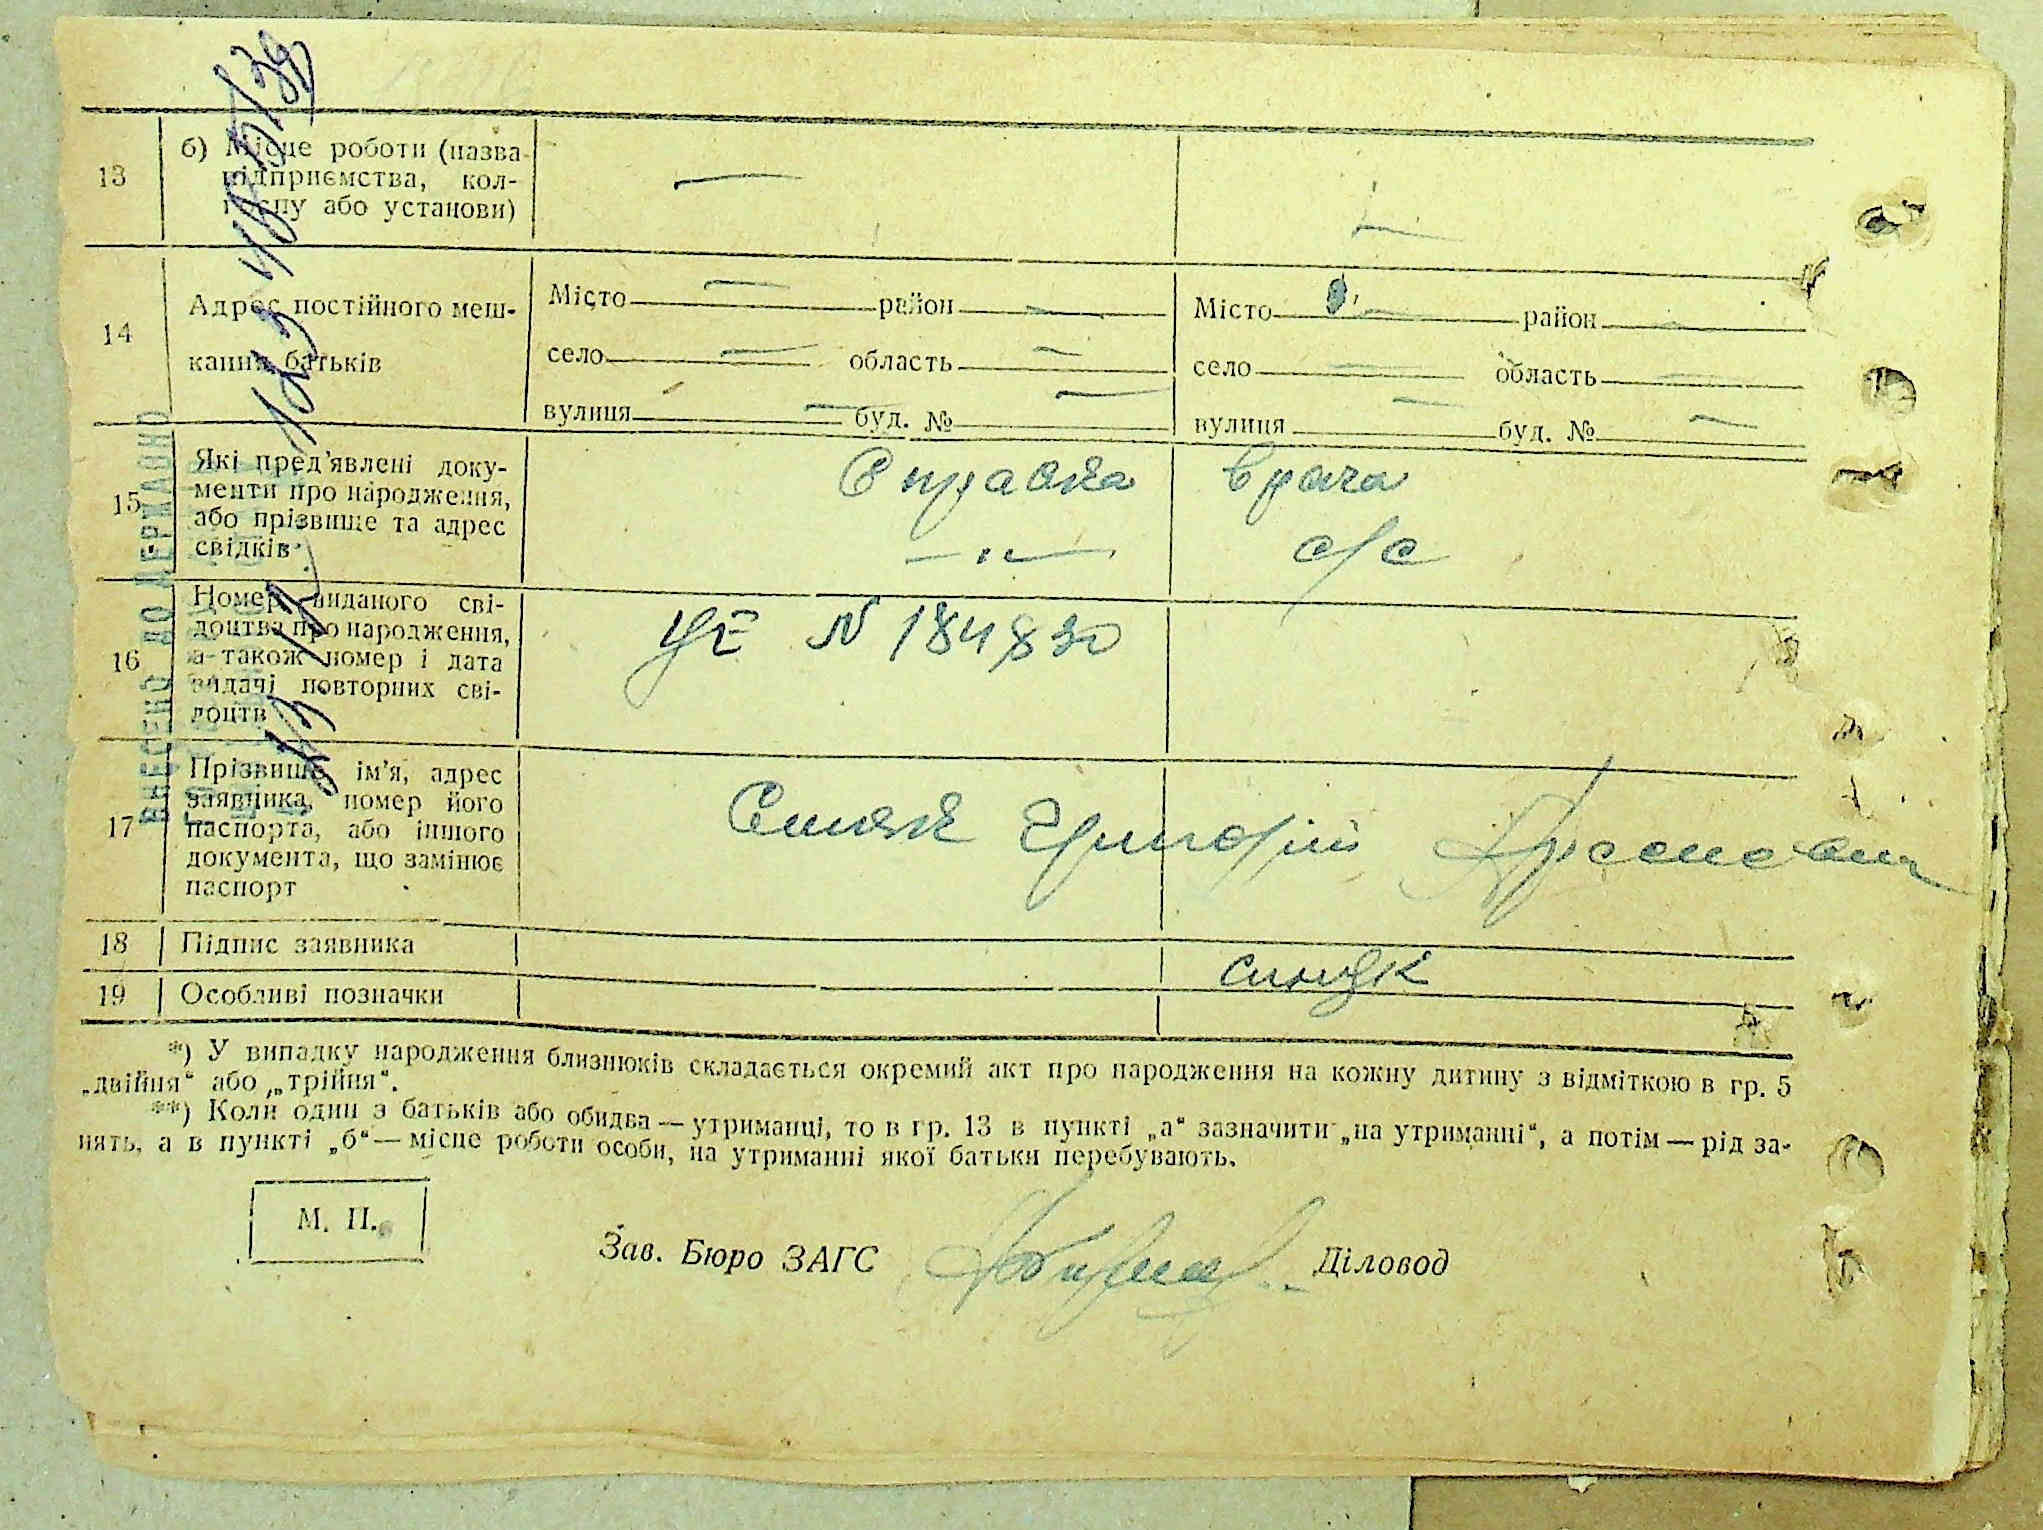 13
б) Місце роботи (назва
підприємства, кол-
госпу або установи)
14
Адрес постійного меш-
кання батьків
Місто — район —
село — область —
вулиця — буд. № —
Місто — район —
село — область —
вулиця — буд. № —
15
Які пред'явлені доку-
менти про народження,
або прізвище та адрес
свідків
Справка врача
—"— с/с
16
Номер виданого сві-
доцтва про народження,
а також номер і дата
видачі повторних сві-
доцтв
УЕ № 184830
17
Прізвище, ім'я, адрес
заявника, номер його
паспорта, або іншого
документа, що замінює
паспорт
18
Підпис заявника
19
Особливі позначки
ВНЕСЕНО ДО ДЕРЖАВНО
*) У випадку народження близнюків складається окремий акт про народження на кожну дитину з відміткою в гр. 5
„двійня“ або „трійня“.
**) Коли один з батьків або обидва — утриманці, то в гр. 13 в пункті „а“ зазначити „на утриманні“, а потім — рід за-
нять, а в пункті „б“ — місце роботи особи, на утриманні якої батьки перебувають.
М. П.
Зав. Бюро ЗАГС Діловод